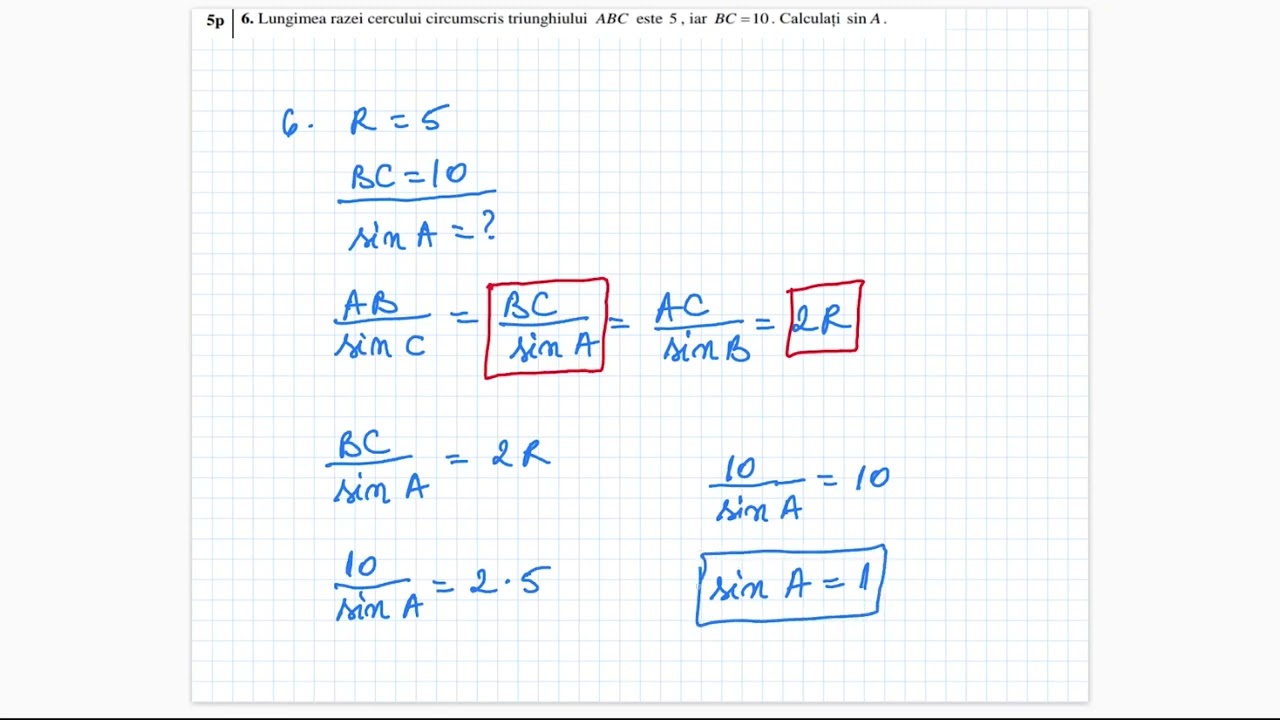 5p 6. Lungimea razei cercului circumscris triunghiului ABC este 5, iar BC = 10. Calculați sin A.
6. R = 5
BC = 10
sin A = ?
AB/sin C = BC/sin A = AC/sin B = 2R
BC/sin A = 2R
10/sin A = 2 · 5
10/sin A = 10
sin A = 1